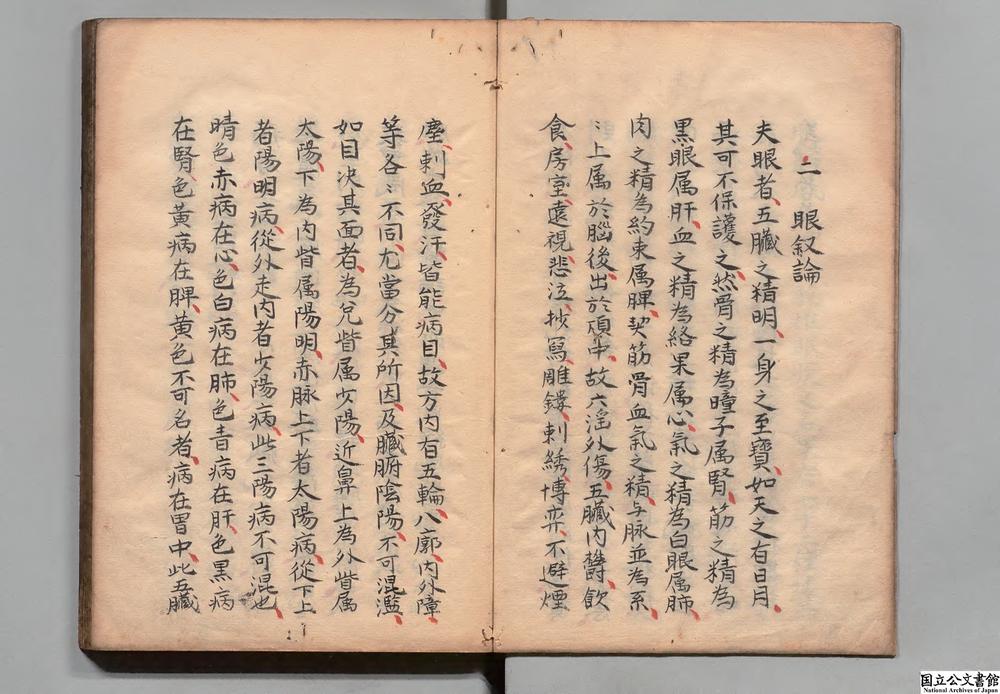 二 眼叙論
夫眼者、五臓之精明、一身之至寶、如天之有日月、
其可不保護之、然骨之精為瞳子属腎、筋之精為
黒眼属肝、血之精為絡果属心、氣之精為白眼属肺、
肉之精為約束属脾、契筋骨血氣之精、与脉並為系、
〻上属於腦後、出於項中、故六淫外傷、五臓内欝、飲
食、房室、遠視、悲泣、抄寫、雕鏤、刺綉、博弈、不避煙
塵、刺血、發汗、皆能病目、故方内有五輪、八廓、内外障、
等各〻不同、尤當分其所因、及臓腑陰陽、不可混濫、
如目决其面者、為兌眥属少陽、近鼻上為外眥属
太陽、下為内眥属陽明、赤脉上下者太陽病、從下上
者陽明病、從外走内者少陽病、此三陽病不可混也、
睛色赤病在心、色白病在肺、色青病在肝、色黒病
在腎、色黄病在脾、黄色不可名者、病在胃中、此五臓
国立公文書館
National Archives of Japan